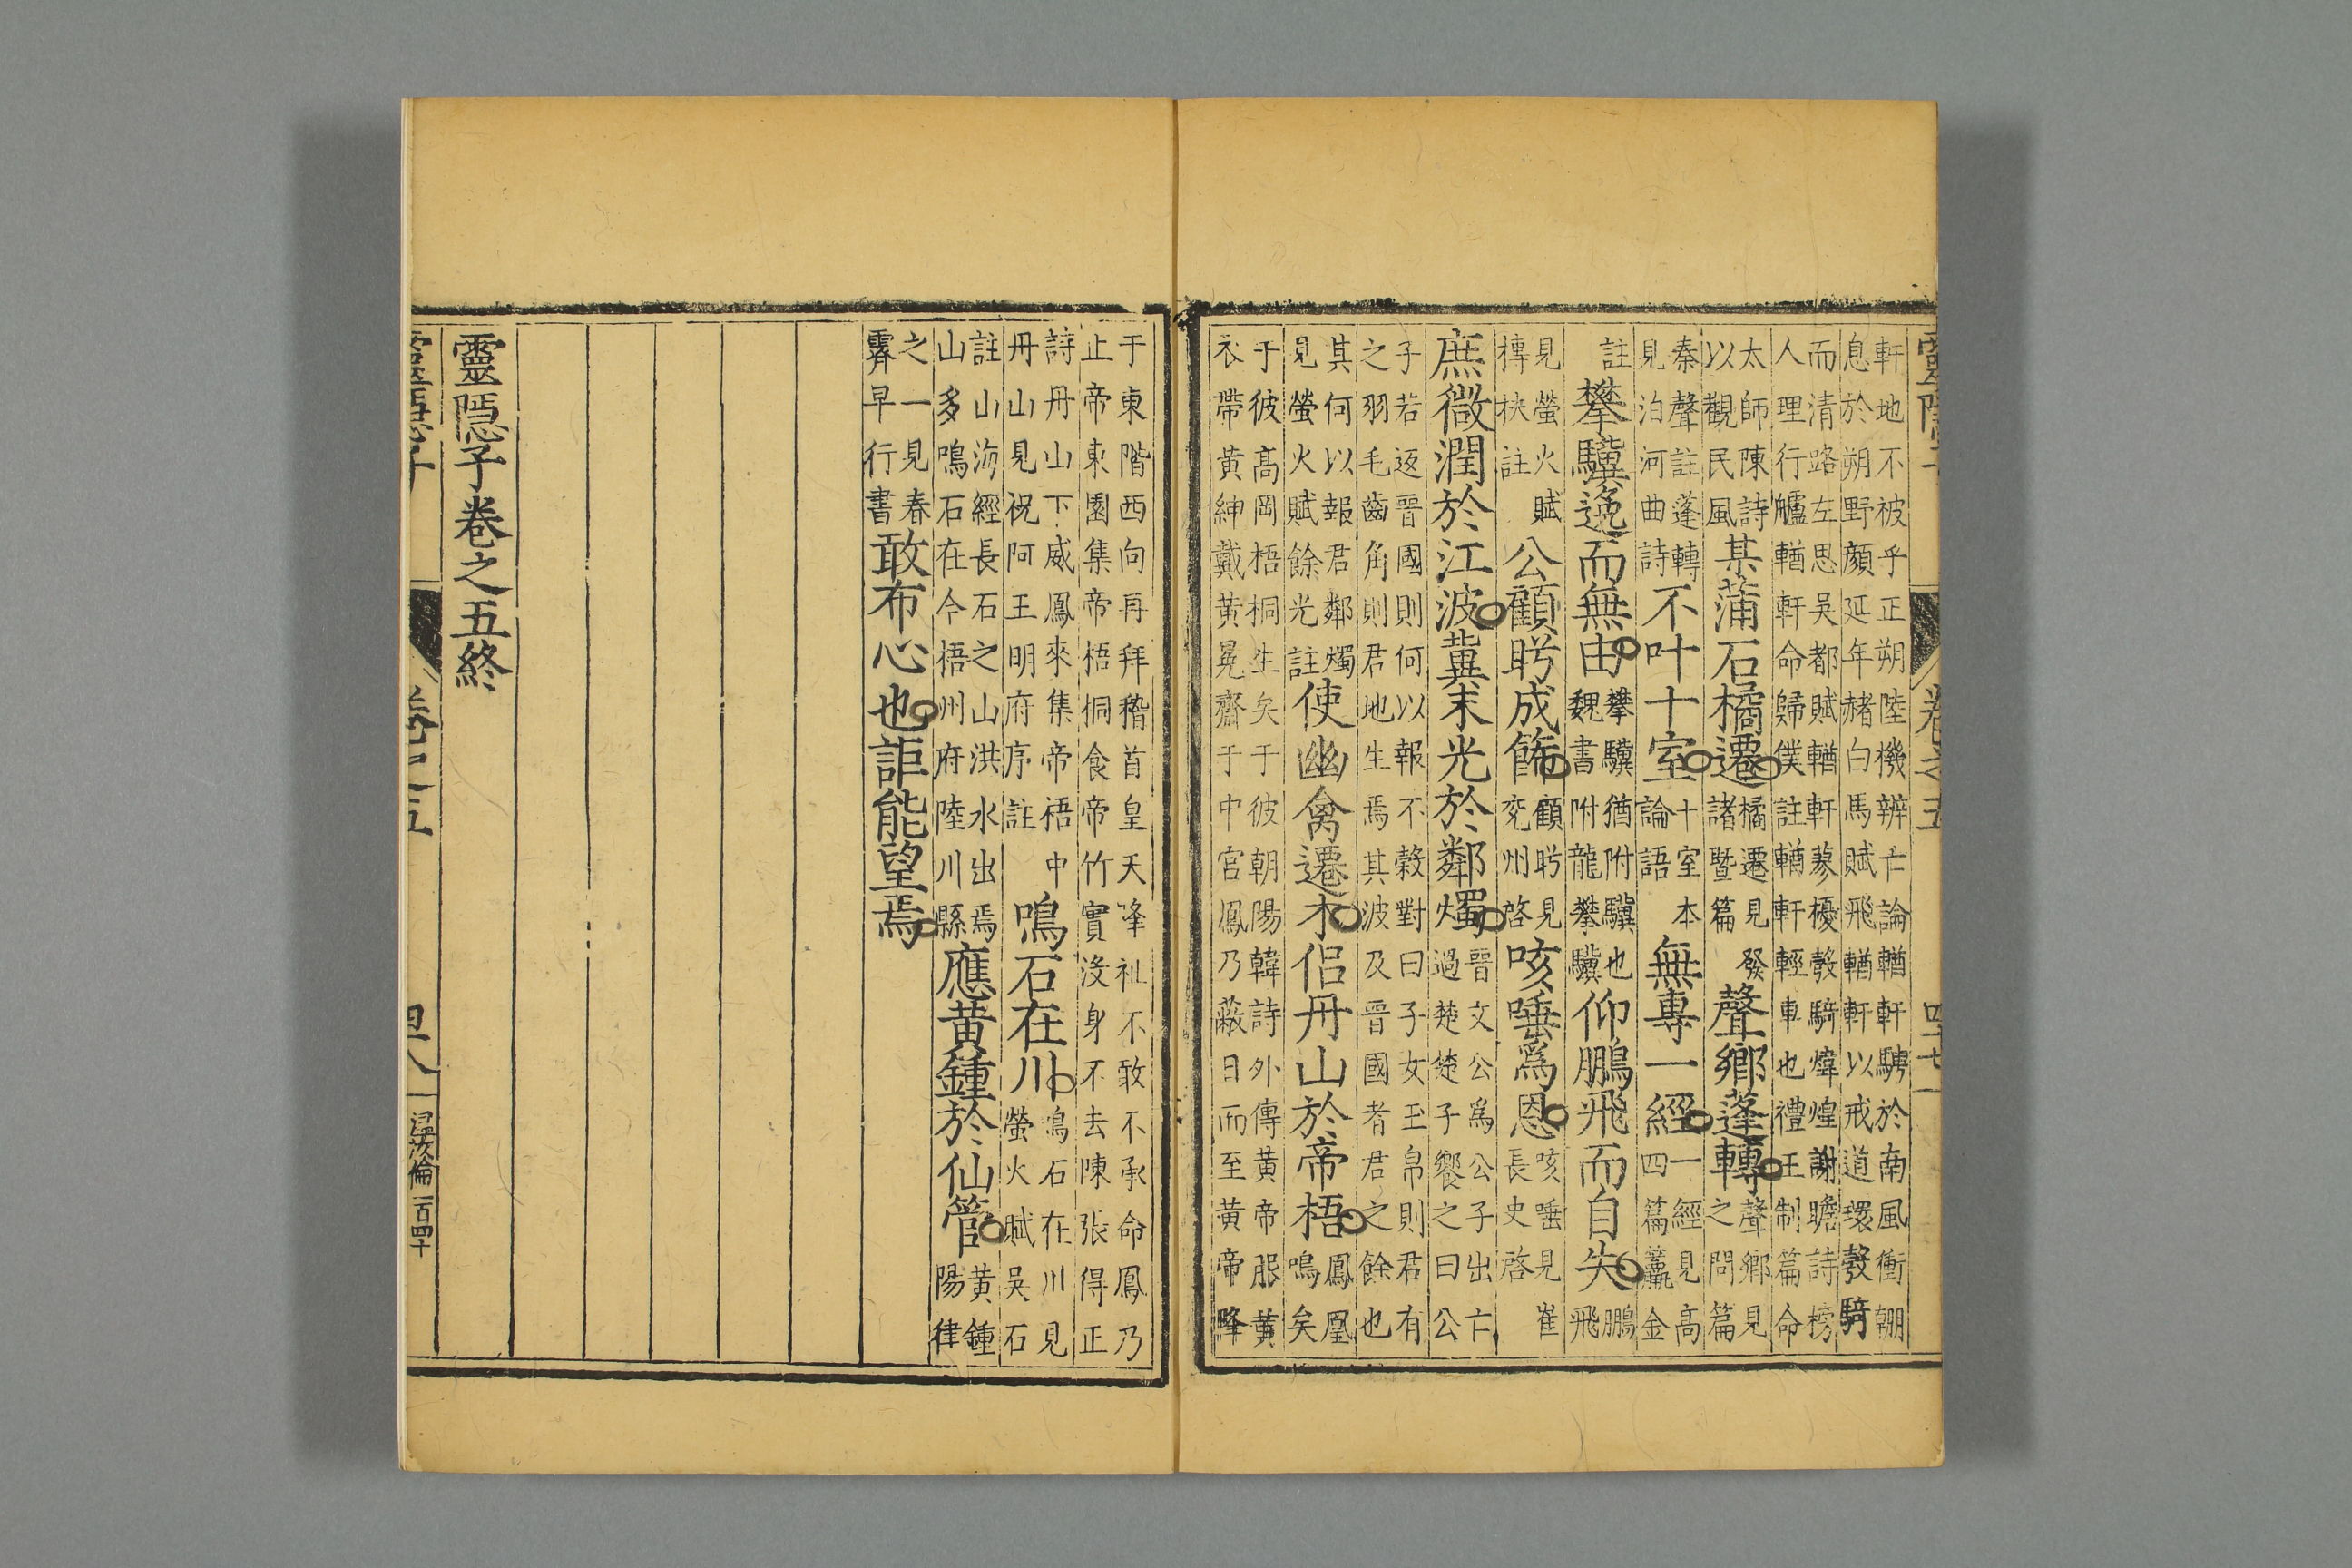 靈隱子
卷之五
四十七
軒地不被乎正朔陸機辨亡論輶軒騁於南風衝輣
息於朔野顏延年赭白馬賦飛輶軒以戒道環彀騎
而清路左思吳都賦輶軒蓼擾彀騎煒煌謝瞻詩榜
人理行艫輶軒命歸僕註輶軒輕車也禮王制篇命
太師陳詩
以觀民風
某蒲石橘遷
橘遷見發
諸暨篇
聲鄉蓬轉
聲鄉見
之問篇
秦聲註蓬轉
見泊河曲詩
不叶十室
十室本
論語
無專一經
一經見高
四篇籝金
註
攀驥逸而無由
攀驥猶附驥也
魏書附龍攀驥
仰鵬飛而自失
鵬
飛
見螢火賦
摶柣註
公顧眄成飾
顧眄見
兖州啓
咳唾爲恩
咳唾見崔
長史啓
庶微潤於江波冀末光於鄰燭
晉文公爲公子出亡
過楚楚子饗之曰公
子若返晉國則何以報不榖對曰子女玉帛則君有
之羽毛齒角則君地生焉其波及晉國者君之餘也
其何以報君鄰燭
見螢火賦餘光註
使幽禽遷木侣丹山於帝梧
鳳凰
鳴矣
于彼高岡梧桐生矣于彼朝陽韓詩外傳黃帝服黃
衣帶黃紳戴黃冕齋于中宮鳳乃蔽日而至黃帝降
于東階西向再拜稽首皇天降祉不敢不承命鳳乃
止帝東園集帝梧桐食帝竹實沒身不去陳張得正
詩丹山下威鳳來集帝梧中
丹山見祝阿王明府序註
鳴石在川
鳴石在川見
螢火賦吳石
註山海經長石之山洪水出焉
山多鳴石在今梧州府陸川縣
應黃鍾於仙管
黃鍾
陽律
之一見春
霽早行書
敢布心也詎能望焉
靈隱子卷之五終
靈隱子
卷之五
四八